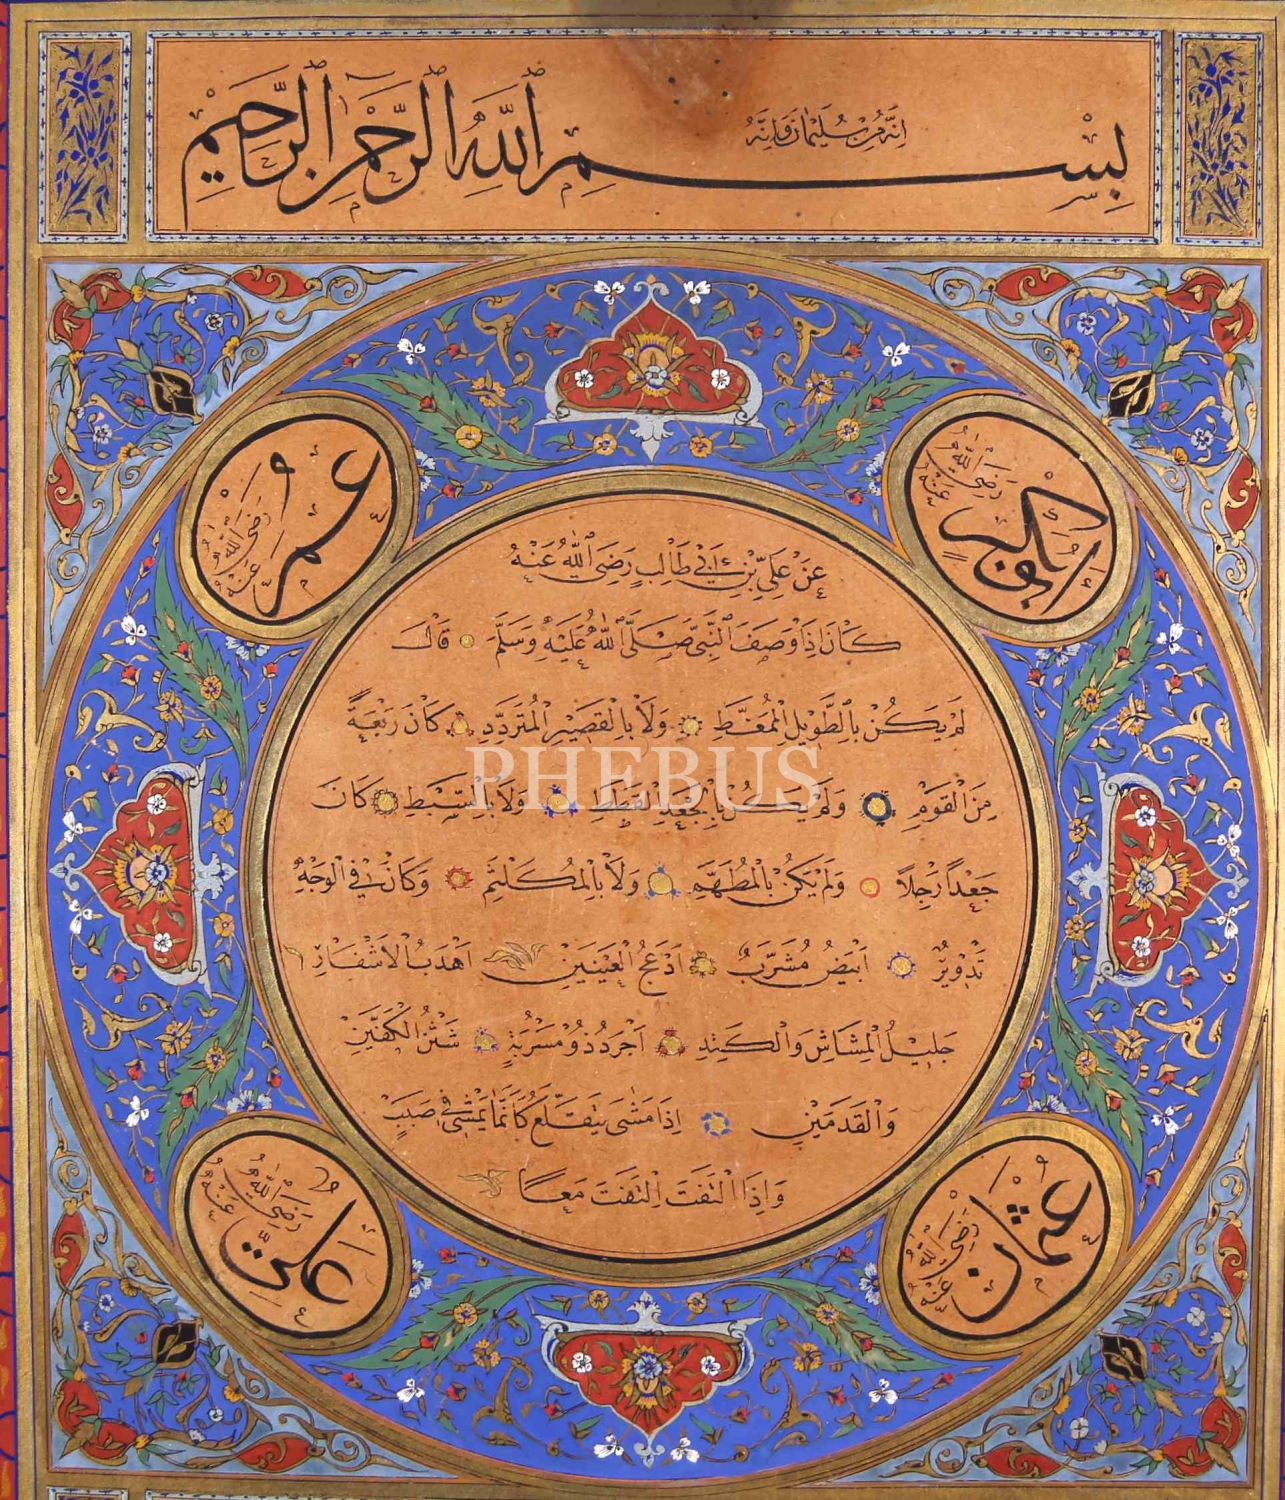 انه من سليمان وانه
بسم الله الرحمن الرحيم
ابوبكر رضي الله عنه
عمر رضي الله عنه
عَنْ عَلِيِّ بْنِ اَبِي طَالِبٍ رَضِيَ اللهُ عَنْهُ
كَانَ اِذَا وَصَفَ النَّبِيَّ صَلَّى اللهُ عَلَيْهِ وَسَلَّمَ قَالَ
لَمْ يَكُنْ بِالطَّوِيلِ الْمُمَغَّطِ وَلَا بِالْقَصِيرِ الْمُتَرَدِّدِ كَانَ رَبْعَةً
PHEBUS
مِنَ الْقَوْمِ وَلَمْ يَكُنْ بِالْجَعْدِ الْقَطَطِ وَلَا بِالسَّبْطِ كَانَ
جَعْداً رَجِلاً وَلَمْ يَكُنْ بِالْمُطَهَّمِ وَلَا بِالْمُكَلْثَمِ وَكَانَ فِي الْوَجْهِ
تَدْوِيرٌ اَبْيَضُ مُشَرَّبٌ اَدْعَجُ الْعَيْنَيْنِ اَهْدَبُ الْاَشْفَارِ
جَلِيلُ الْمُشَاشِ وَالْكَتَدِ اَجْرَدُ ذُو مَسْرُبَةٍ شَثْنُ الْكَفَّيْنِ
وَالْقَدَمَيْنِ اِذَا مَشَى يَتَقَلَّعُ كَاَنَّمَا يَمْشِي فِي صَبَبٍ
وَاِذَا الْتَفَتَ اِلْتَفَتَ مَعًا
عثمان رضي الله عنه
علي رضي الله عنه